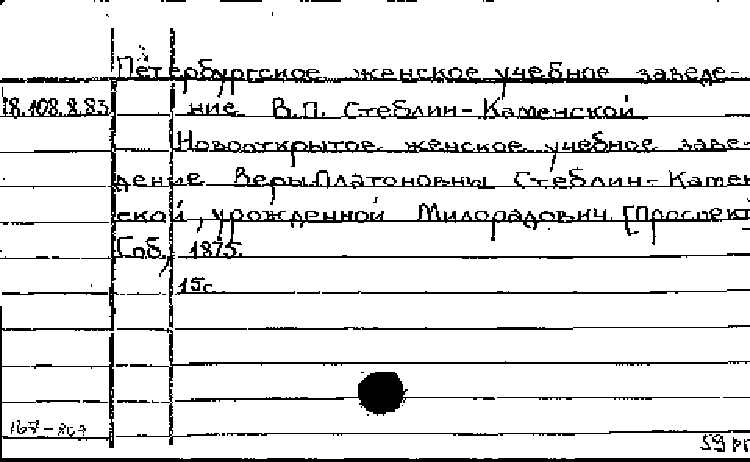 Петербургское женское учебное заведе-
18.108.8.83 ние В.П. Стеблин-Каменской
Новооткрытое женское учебное заве-
дение Веры Платоновны Стеблин-Камен
ской, урожденной Милорадович. [Проспект]
Спб, 1875.
15с.
167-
59